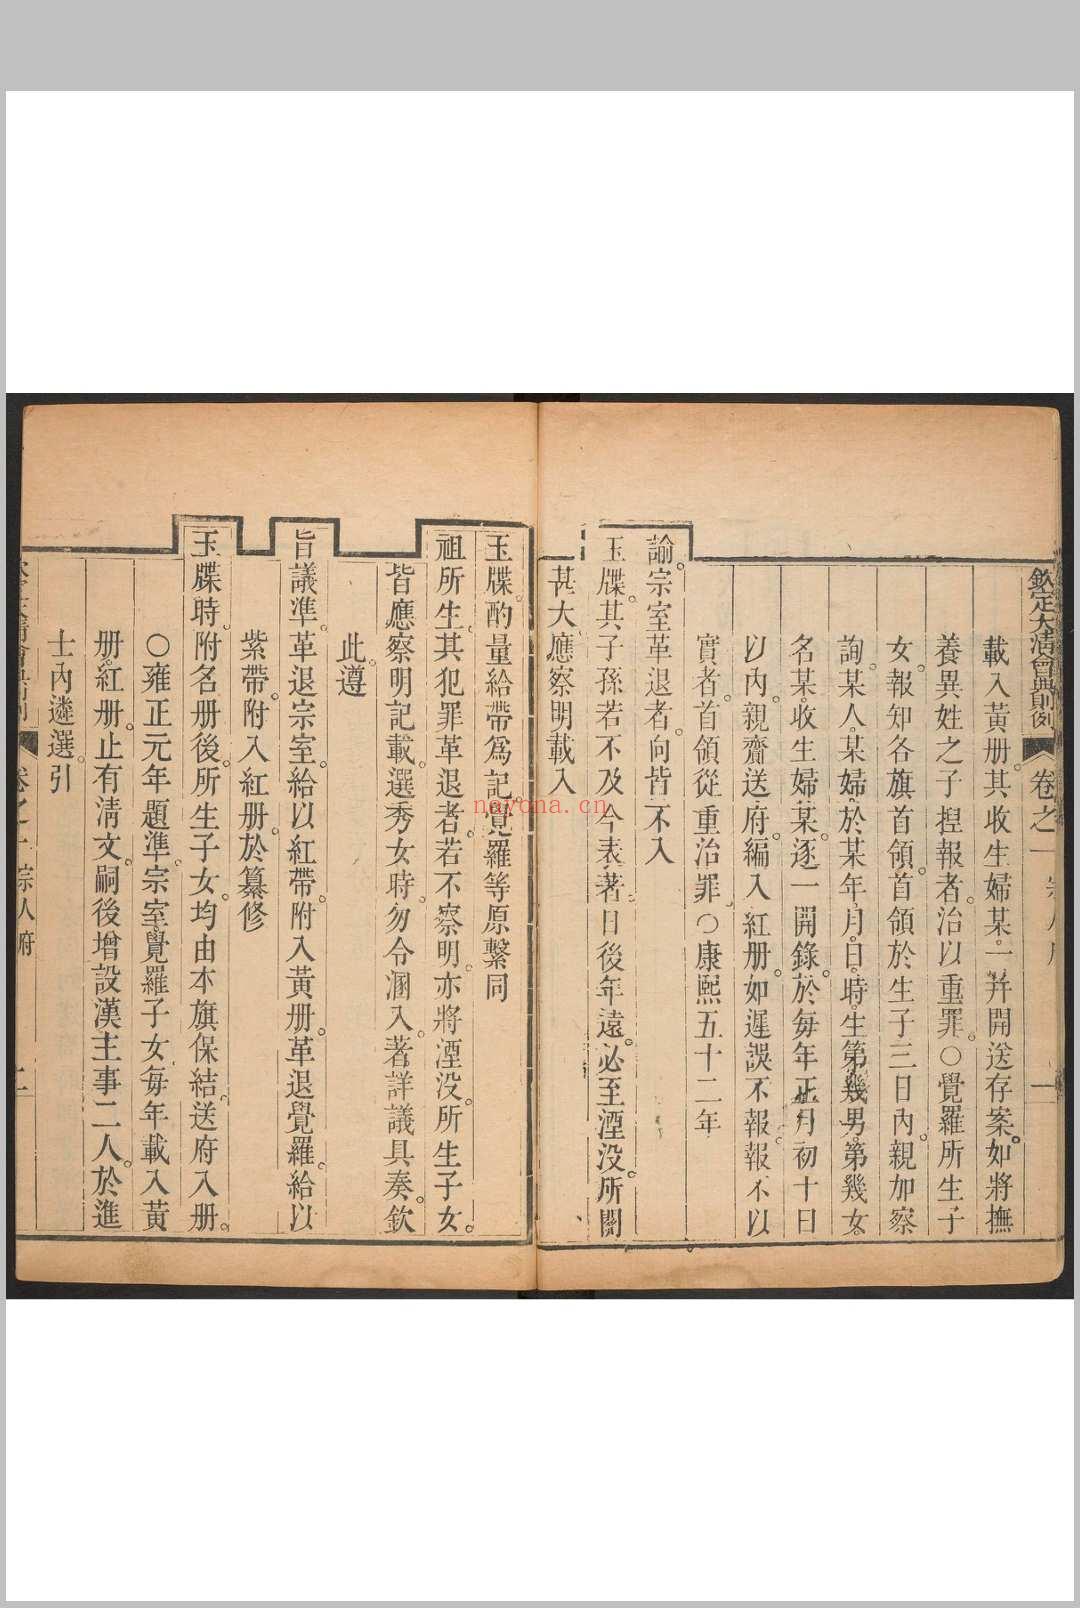 欽定大清會典則例 卷之一
載入黃册。其收生婦某。一幷開送存案。如將撫
養異姓之子捏報者。治以重罪。○覺羅所生子
女。報知各旗首領。首領於生子三日內。親加察
詢。某人。某婦。於某年。月。日。時。生第幾男。第幾女。
名某。收生婦某。逐一開錄。於每年正月初十日
以內。親齎送府。編入紅册。如遲誤不報。報不以
實者。首領從重治罪。○康熙五十二年
諭。宗室革退者。向皆不入
玉牒。其子孫若不及今表著。日後年遠。必至湮没。所關
甚大。應察明載入
玉牒。酌量給帶爲記。覺羅等原繫同
祖所生。其犯罪革退者。若不察明。亦將湮没。所生子女。
皆應察明記載。選秀女時。勿令溷入。著詳議具奏。欽
此。遵
旨議準。革退宗室。給以紅帶。附入黃册。革退覺羅。給以
紫帶。附入紅册。於纂修
玉牒時。附名册後。所生子女。均由本旗保結送府入册。
○雍正元年題準。宗室覺羅子女。每年載入黃
册紅册。止有淸文。嗣後增設漢主事二人。於進
士內遴選。引
宗人府
二
nayona.cn